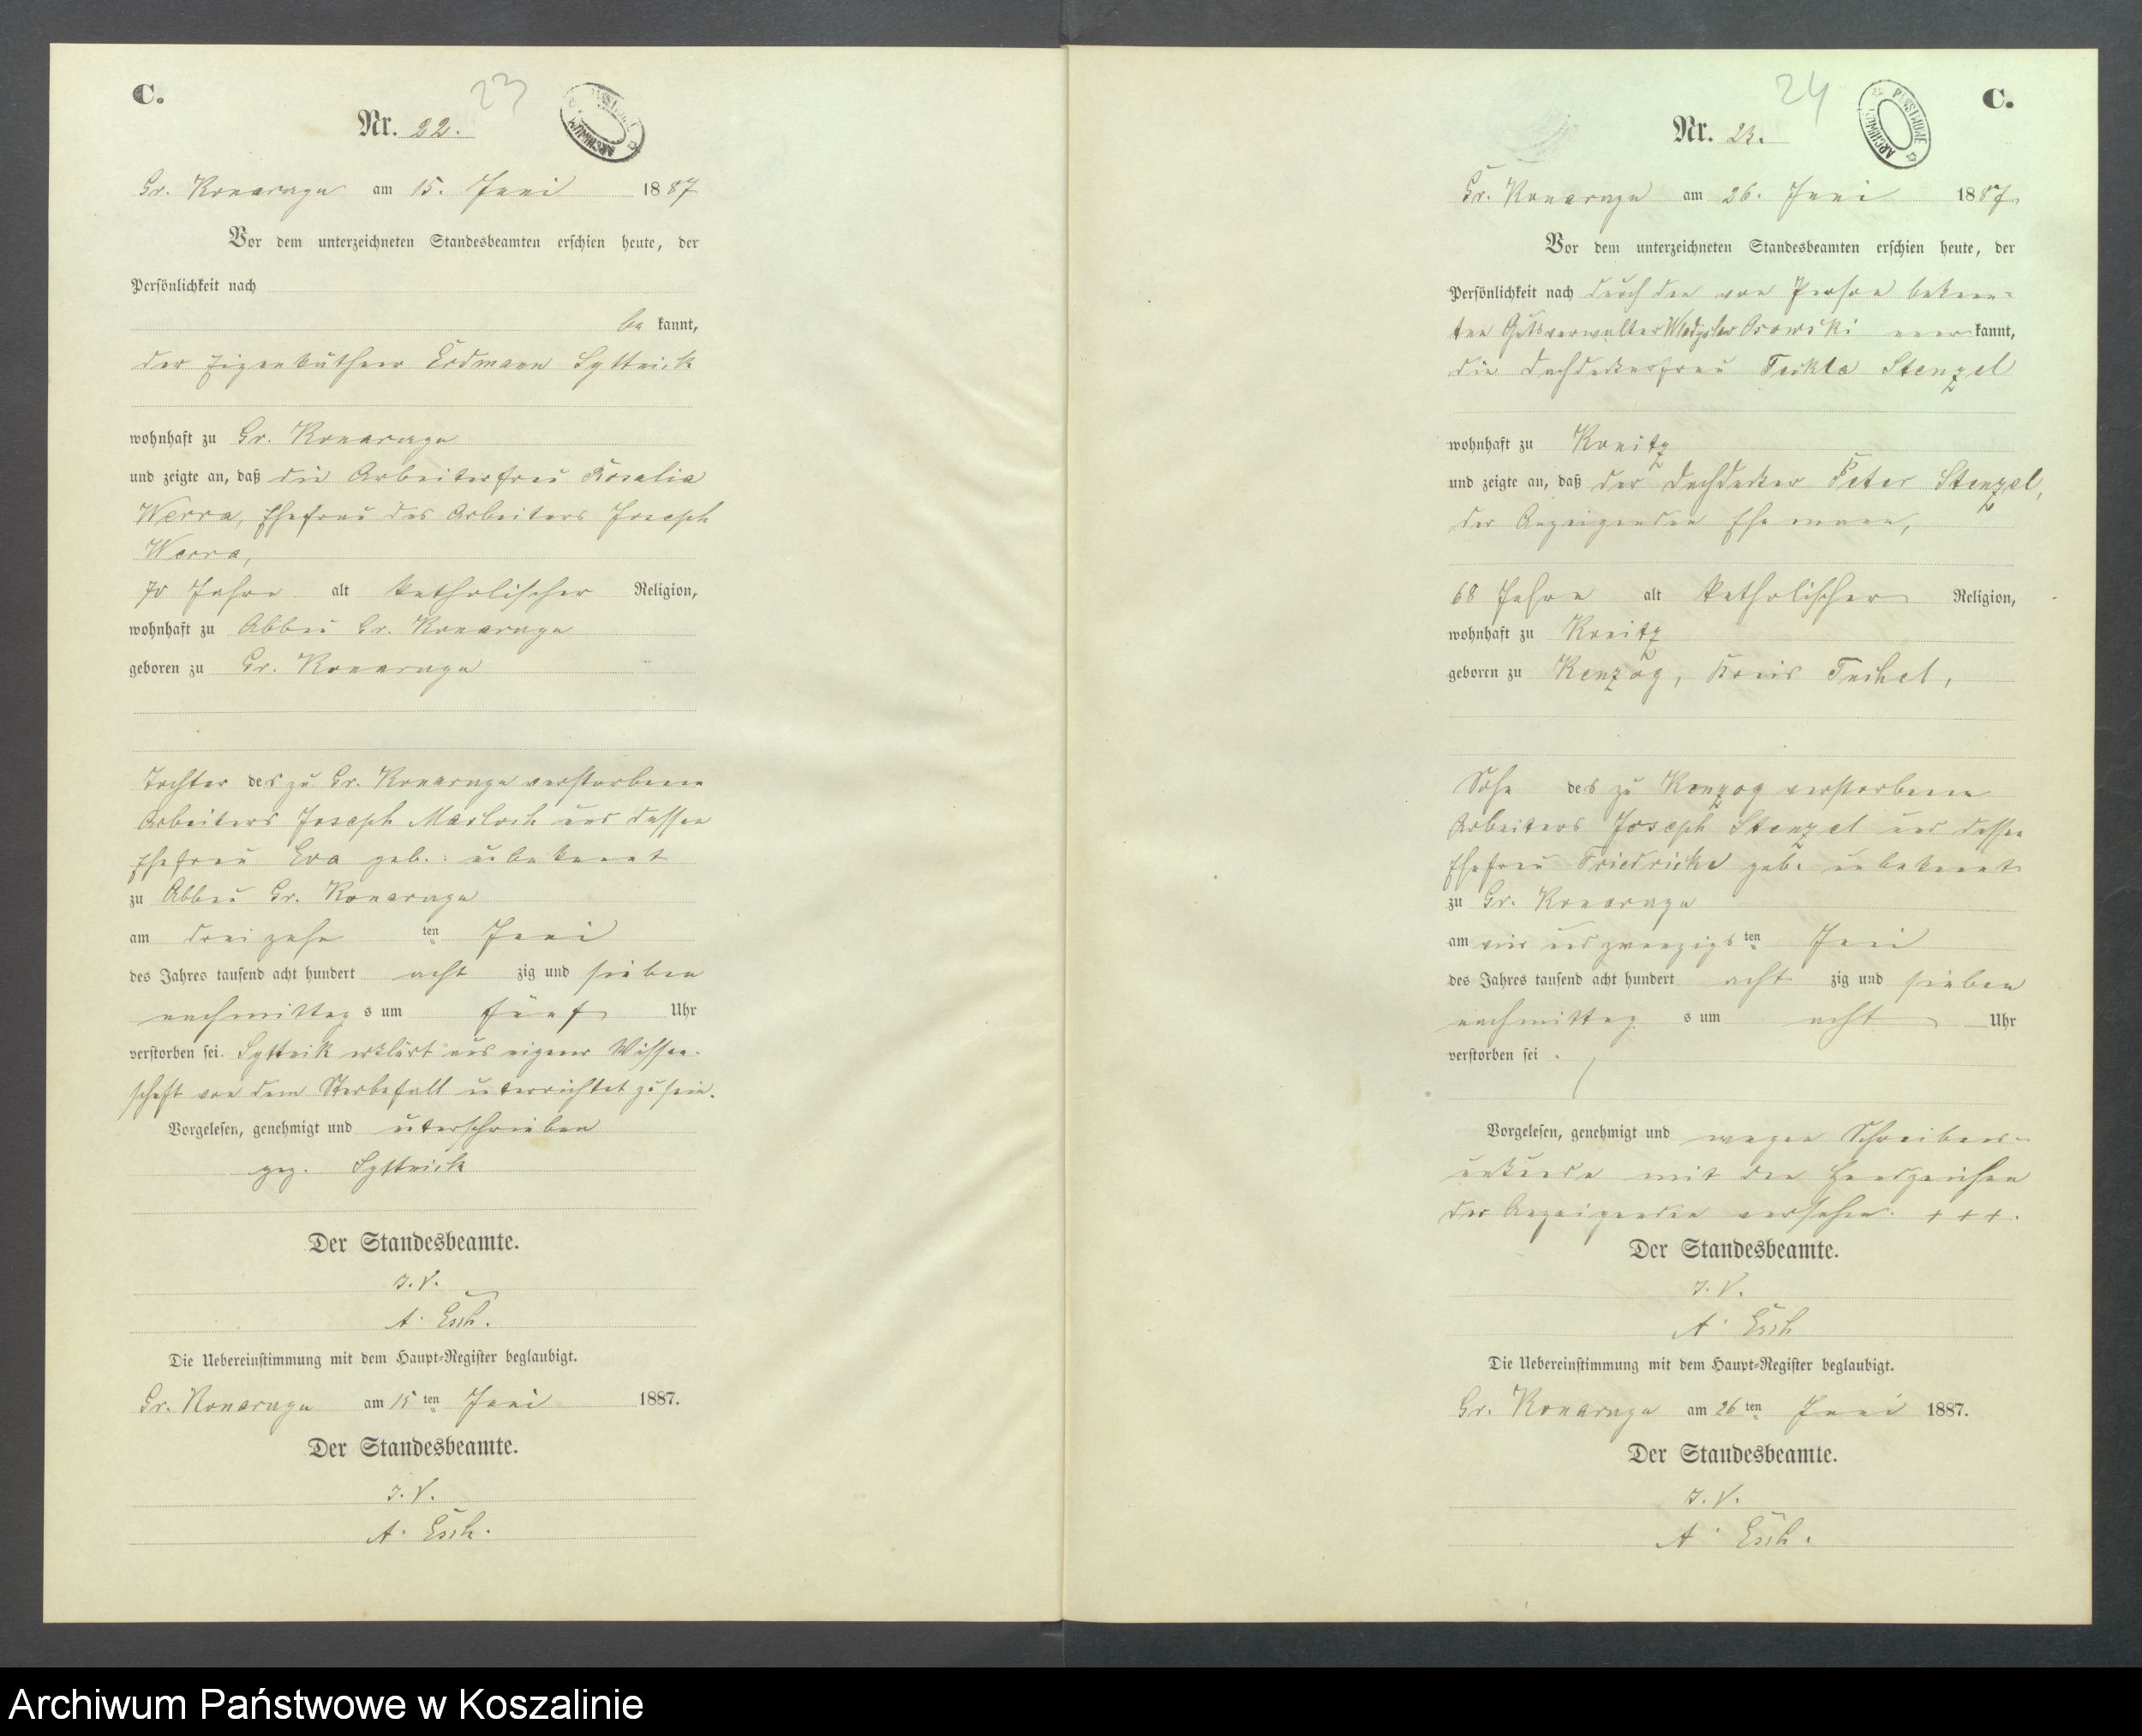 C.
23
Nr. 22.
Gr. Konarczyn am 15. Juni 1887
Vor dem unterzeichneten Standesbeamten erschien heute, der
Persönlichkeit nach
be kannt,
der Eigenkäthner Erdmann Syttnick
wohnhaft zu Gr. Konarczyn
und zeigte an, daß die Arbeiterfrau Rosalia
Werra, Ehefrau des Arbeiters Joseph
Werra,
70 Jahre alt katholischer Religion,
wohnhaft zu Abbau Gr. Konarczyn
geboren zu Gr. Konarczyn
Tochter des zu Gr. Konarczyn verstorbenen
Arbeiters Joseph Masloch und dessen
Ehefrau Eva geb. unbekannt
zu Abbau Gr. Konarczyn
am dreizehn ten Juni
des Jahres tausend acht hundert acht zig und sieben
nachmittag s um fünf Uhr
verstorben sei. Syttnik erklärt aus eigener Wissen-
schaft von dem Sterbefall unterrichtet zu sein.
Vorgelesen, genehmigt und unterschrieben
gez. Syttnick
Der Standesbeamte.
I. V.
A. Esch.
Die Uebereinstimmung mit dem Haupt-Register beglaubigt.
Gr. Konarczyn am 15 ten Juni 1887.
Der Standesbeamte.
I. V.
A. Esch.
24
C.
ARCHIWUM PAŃSTWOWE
Nr. 23.
Gr. Konarczyn am 26. Juni 1887
Vor dem unterzeichneten Standesbeamten erschien heute, der
Persönlichkeit nach durch den von Person bekann-
ten Gutsverwalter Wladyslaw Osowski anerkannt,
die Dachdeckerfrau Teckla Stenzel
wohnhaft zu Konitz
und zeigte an, daß der Dachdecker Peter Stenzel,
der Anzeigenden Ehemann,
68 Jahre alt katholischer Religion,
wohnhaft zu Konitz
geboren zu Kenzog, Kreis Tuchel,
Sohn des zu Kenzog verstorbenen
Arbeiters Joseph Stenzel und dessen
Ehefrau Friedricke geb. unbekannt
zu Gr. Konarczyn
am vier und zwanzigs ten Juni
des Jahres tausend acht hundert acht zig und sieben
nachmittag s um acht Uhr
verstorben sei.
Vorgelesen, genehmigt und wegen Schreibens-
unkunde mit den Handzeichen
der Anzeigenden versehen. + + +.
Der Standesbeamte.
I. V.
A. Esch
Die Uebereinstimmung mit dem Haupt-Register beglaubigt.
Gr. Konarczyn am 26 ten Juni 1887.
Der Standesbeamte.
I. V.
A. Esch.
Archiwum Państwowe w Koszalinie